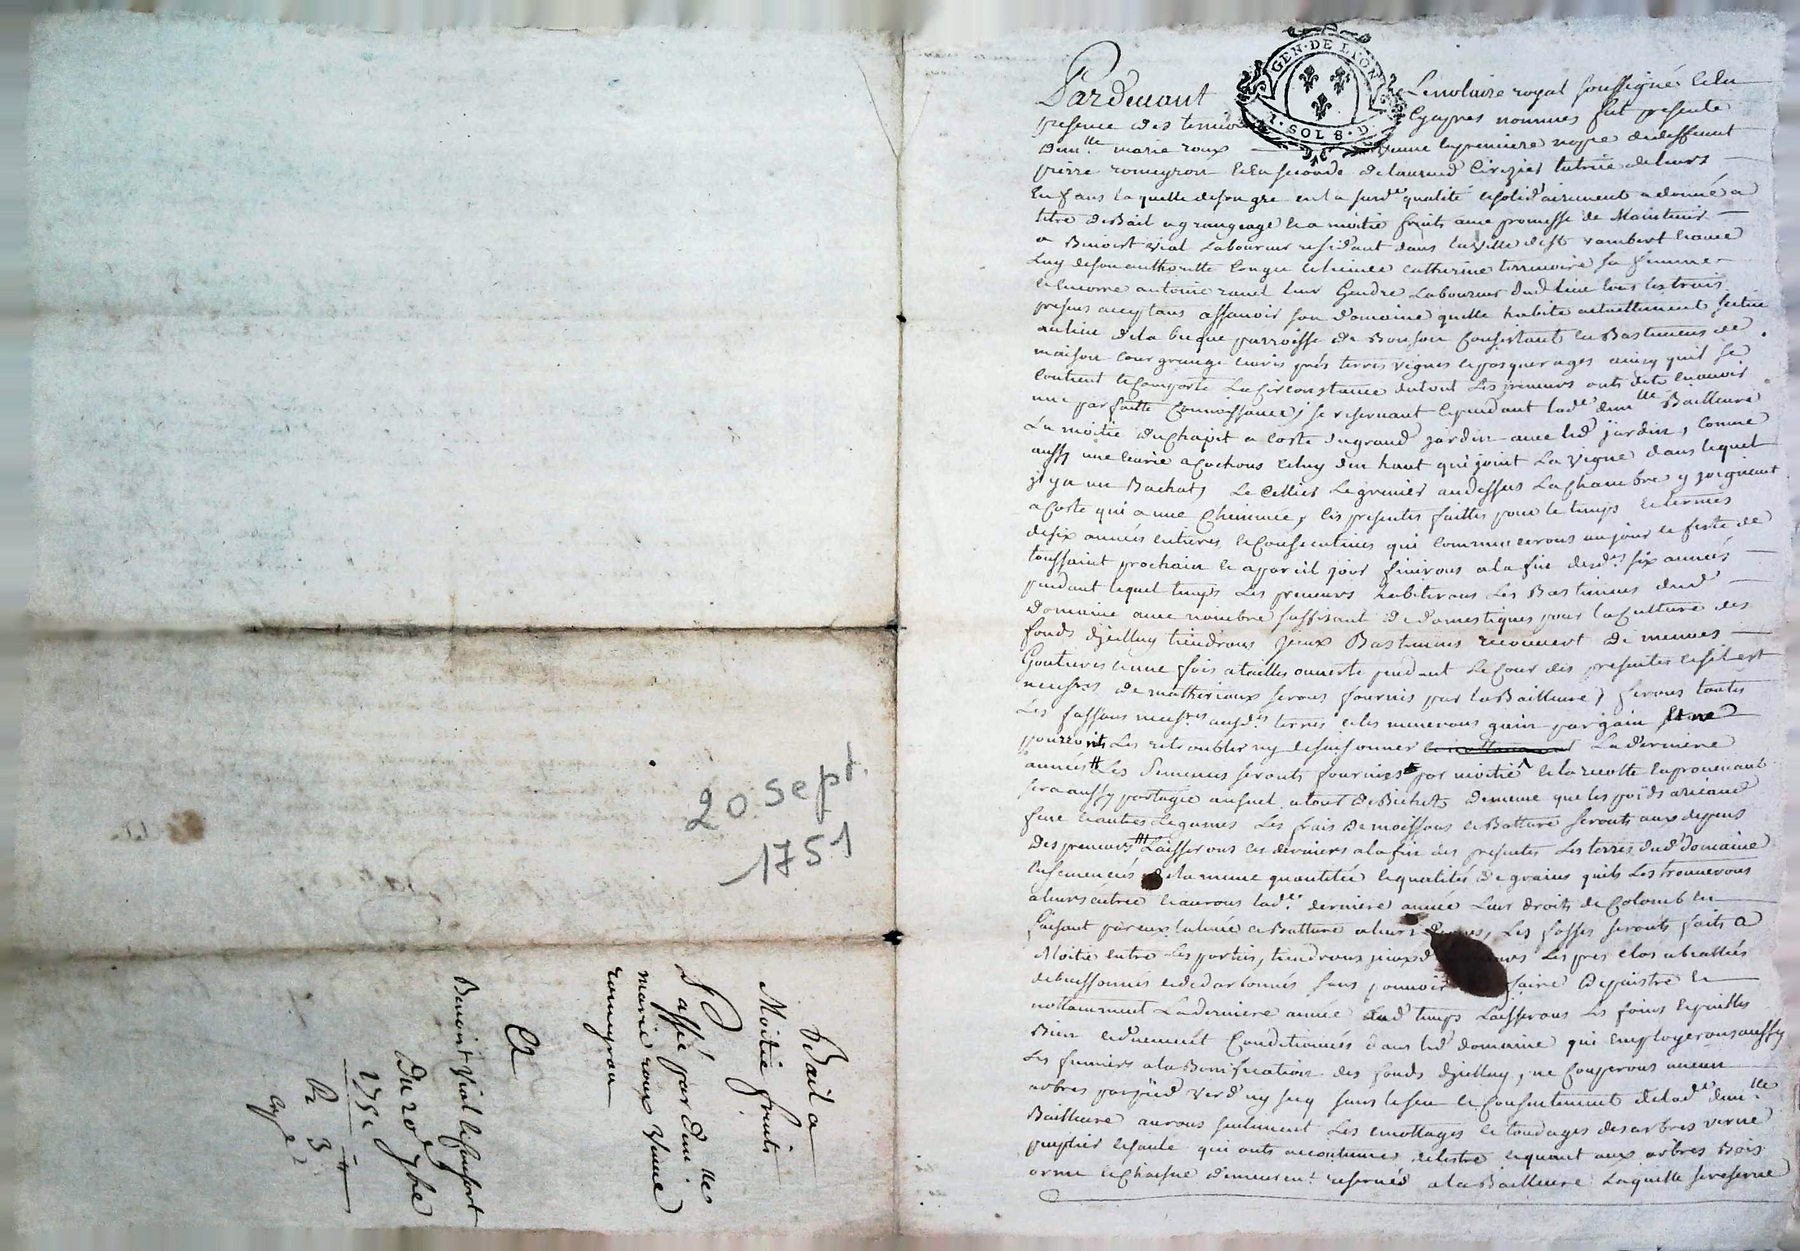 20 sept.
1751
Bail a
Moitié fruits
Passé par dam.lle
marie roux veuve
romeyron
A
Benoit vial et consort
Du 20 7bre
1751
GEN·DE LYON
I·SOL 8·D
Pardevant Le notaire royal soussigné et en
presence des temoins Cyapres nommes fut presente
dem.lle marie roux veuve en premiere nopce de deffunt
pierre romeyron et en seconde de laurend tutrice de leurs
Enfans laquelle de son gre en la susd.e qualité et solidairement a donné a
titre de Bail a grangeage et a moitié fruits avec promesse de Maintenir
a Benoist vial Laboureur residant dans la ville de st rambert et avec
Luy de son authorité conge et licence catherine sa femme
et encorre antoine ravel leur Gendre Laboureur dud lieu tous les trois
presens acceptans assavoir son domaine quelle habite actuellement scitué
au lieu de la parroisse de Bonson Consistant en Bastimens de
maison cour grange curie prés terres vignes et pasquerages ainsy quil se
Contient et Comporte La Circonstance du tout Les preneurs onts dits en avoir
une parfaitte Connoissance, se reservant cependant lad.e dem.lle Bailleure
La moitié du Chapit a costé du grand jardin avec led jardin, comme
aussy une eurie a Cochons celuy den haut qui joint La vigne dans lequel
il y a un Bachat, Le Cellier Le grenier au dessus La chambre y joignant
a Costé qui a une Cheminée, les presentes faittes pour le temps et termes
de six années entieres et Consecutives qui commencerons au jour et feste de
toussaint prochain et a pareil jour finirons a la fin desd.es six années
pendant lequel temps Les preneurs habiterons Les Bastimens dud
domaine avec nombre suffisant de domestiques pour la Culture des
fonds djcelluy tiendrons Bastimens recouvert de menues
Goutieres et une fois a tailles ouverte pendant Le Cour des presentes et sil est
necess.es de matheriaux serons fournis par la Bailleure, ferons toutes
Les fassons necess.res ausd.es terres et les menerons gain par gain et ne
pourronts Les retroubler ny dessaisonner La derniere
année # Les Semences seronts fournies par moitié et la recolte en provenant
sera aussy portagée au suel a tour de Bichets de meme que les poids
feve et autres Legumes Les frais de moissons et Batture seronts aux depens
des preneurs ## Laisserons ces derniers a la fin des presentes Les terres dud domaine
Ensemencés de la meme quantitée et qualités de grains quils Les trouverons
a leurs entrée et aurons lad.e derniere année Leur droits de Colomb en
faisant par eux Batture a leurs Les fosses seronts faits a
Moitié entre Les parties, tiendrons Les pres clos
debuissonnés et sans pouvoir faire depaistre et
nottamment La derniere année dud temps Laisserons Les foins et pailles
Bien et duement Conditionnés dans led domaine qui employerons aussy
Les fumiers a la Bonification des fonds djcelluy, ne Couperons aucun
arbres par pied verd ny secq sans le sceu et Consentement de lad.e dem.lle
Bailleure aurons seulement Les emottages et tondages des arbres verne
peuplier et saule qui onts accoutumé et quant aux arbres Bois
orme et Chaisne demeurent reservés a la Bailleure Laquelle se reserve